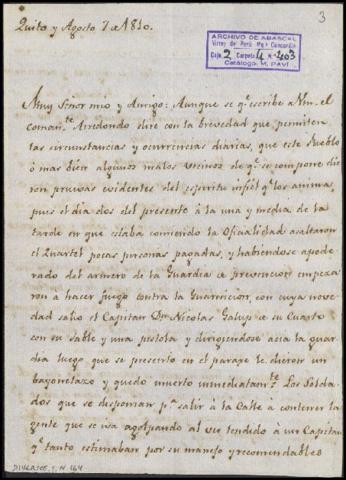 3
Quito y Agosto 7 de 1810.
ARCHIVO DE ABASCAL
Virrey de Perú Mqs Concordia
Caja 2 Carpeta 4 n.º 403
Catálogo, M. PAVÍ
Muy Señor mio y Amigo: Aunque se qe escribe a Vm. el
Coman.te Arredondo dire con la brevedad que permiten
las circunstancias y ocurrencias diarias, que este Pueblo
ó mas bien algunos malos vecinos de qe se compone die
ron pruevas evidentes del espiritu infiel qe los anima,
pues el dia dos del presente á la una y media de la
tarde en que estaba comiendo la Oficialidad asaltaron
el Quartel pocas personas pagadas, y habiendose apode
rado del armero de la Guardia de prevencion, empeza
ron a hacer fuego contra la Guarnicion, con cuya nove
dad salio el Capitan Dn Nicolas Galup de su Cuarto
con su sable y una pistola y dirigiendose acia la guar
dia luego que se presento en el parage le dieron un
bayonetazo y quedó muerto immediatam.te Los Solda
dos que se disponian pa salir á la Calle á contener la
gente que se iva agolpando al ver tendido á un Capitan
qe tanto estimaban por su manejo y recomendables
DIVERSOS, 2, N 164